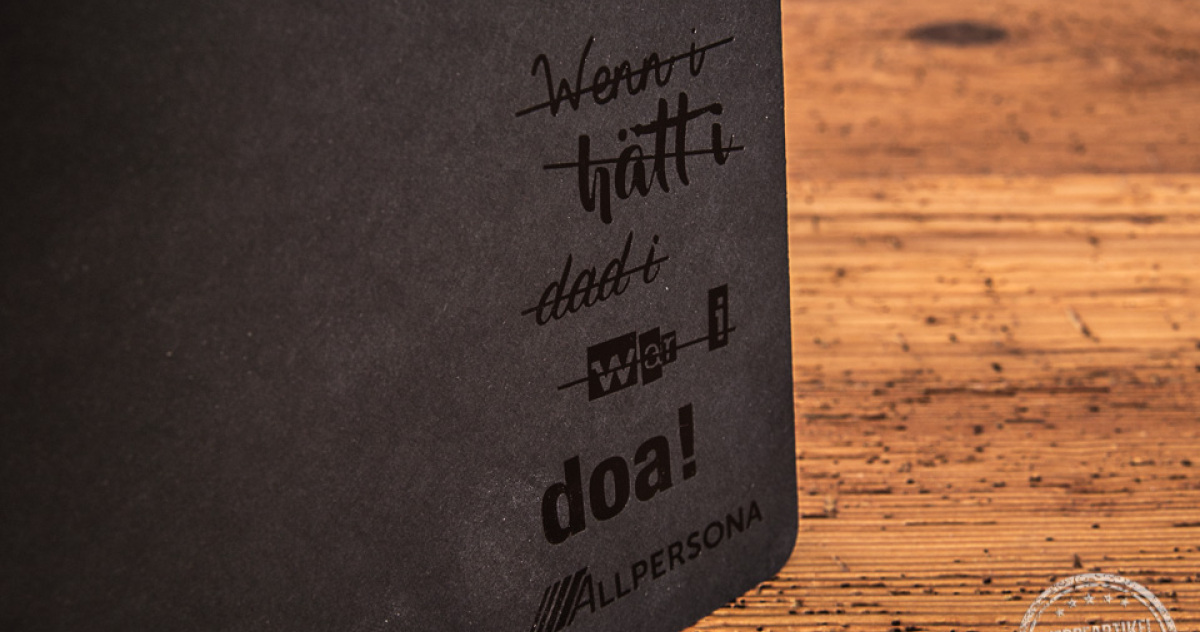 Wenn i
hätt i
dad i
war i
doa!
ALLPERSONA